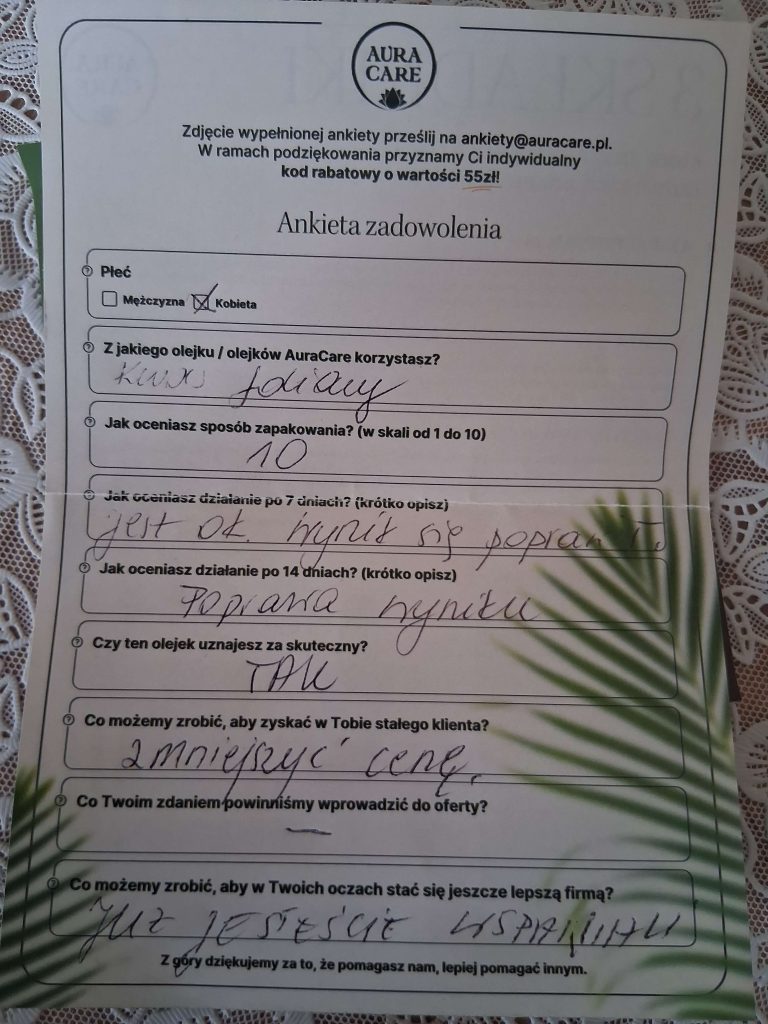 AURA
CARE
Zdjęcie wypełnionej ankiety prześlij na ankiety@auracare.pl.
W ramach podziękowania przyznamy Ci indywidualny
kod rabatowy o wartości 55zł!
Ankieta zadowolenia
Płeć
Mężczyzna Kobieta
Z jakiego olejku / olejków AuraCare korzystasz?
Kwas foliowy
Jak oceniasz sposób zapakowania? (w skali od 1 do 10)
10
Jak oceniasz działanie po 7 dniach? (krótko opisz)
jest ok. wynik się
Jak oceniasz działanie po 14 dniach? (krótko opisz)
Poprawa wyniku
Czy ten olejek uznajesz za skuteczny?
TAK
Co możemy zrobić, aby zyskać w Tobie stałego klienta?
zmniejszyć cenę.
Co Twoim zdaniem powinniśmy wprowadzić do oferty?
—
Co możemy zrobić, aby w Twoich oczach stać się jeszcze lepszą firmą?
JUŻ JESTEŚCIE WSPANIALI
Z góry dziękujemy za to, że pomagasz nam, lepiej pomagać innym.